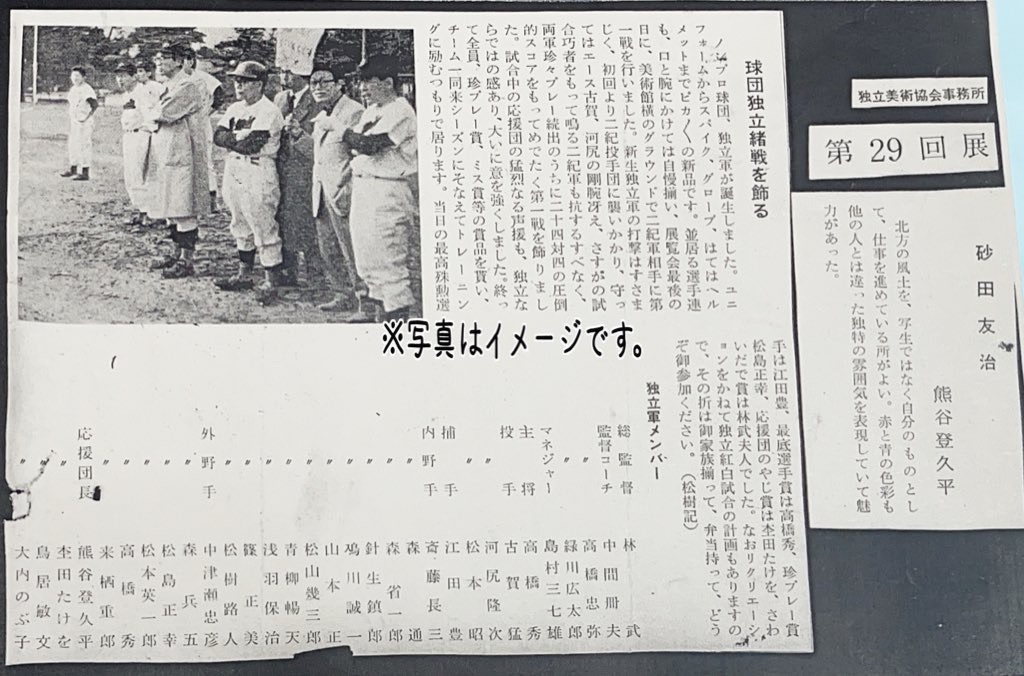 独立美術協会事務所
第29回展
砂田友治
熊谷登久平
北方の風土を、写生ではなく自分のものとし
て、仕事を進めている所がよい。赤と青の色彩も
他の人とは違った独特の雰囲気を表現していて魅
力があった。
球団独立緒戦を飾る
ノンプロ球団、独立軍が誕生しました。ユニ
フォームからスパイク、グローブ、はてはヘル
メットまでピカ〱の新品です。並居る選手連
も、口と腕にかけては自慢揃い、展覧会最後の
日に、美術館横のグラウンドで二紀軍相手に第
一戦を行いました。新生独立軍の打撃はすさま
じく、初回より二紀投手団に襲いかかり、守っ
てはエース古賀、河尻の剛腕冴え、さすがの試
合巧者をもって鳴る二紀軍も抗するすべなく、
両軍珍々プレー続出のうちに二十四対四の圧倒
的スコアをもってめでたく第一戦を飾りまし
た。試合中の応援団の猛烈なる声援も、独立な
らではの感あり、大いに意を強くしました。終っ
て全員、珍プレー賞、ミス賞等の賞品を貰い、
チーム一同来シーズンにそなえてトレーニン
グに励むつもりで居ります。当日の最高殊勲選
手は江田豊、最底選手賞は高橋秀、珍プレー賞
松島正幸、応援団のやじ賞は杢田たけを、さわ
いだで賞は林武夫人でした。なおリクリエーシ
ョンをかねて独立紅白試合の計画もありますの
で、その折は御家族揃って、弁当持って、どう
ぞ御参加ください。（松樹記）
※写真はイメージです。
独立軍メンバー
総監督 林武
監督 中間冊夫
コーチ 高橋忠弥
〃 緑川広太郎
マネジャー 島村三七雄
主将 高橋秀
投手 古賀猛
〃 河尻隆次
〃 松本昭
捕手 江田豊
内野手 斎藤長三
〃 森通
〃 森省一郎
〃 針生鎮郎
〃 鳴川誠一
〃 山本正
〃 松山幾三郎
〃 青柳暢天
〃 浅羽保治
〃 篠正美
〃 松樹路人
外野手 中津瀬忠彦
〃 森兵五
〃 松島正幸
〃 松本英一郎
〃 高橋秀
〃 来栖重郎
応援団長 熊谷登久平
〃 杢田たけを
〃 鳥居敏文
〃 大内のぶ子